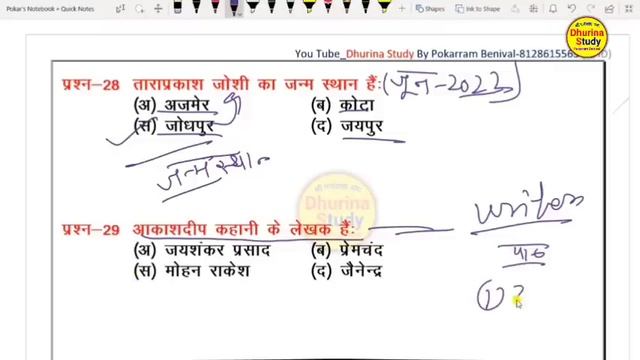 Pokar's Notebook » Quick Notes
Pens
Share
Ink to Shape
Dhurina
Study
You Tube_Dhurina Study By Pokarram Benival-81286155
प्रश्न–28 ताराप्रकाश जोशी का जन्म स्थान हैं: (जून-2022)
(अ) अजमेर (ब) कोटा
(स) जोधपुर (द) जयपुर
जन्म स्थान
Dhurina
Study
writer
प्रश्न–29 आकाशदीप कहानी के लेखक हैं:
पाठ
(अ) जयशंकर प्रसाद (ब) प्रेमचंद
(स) मोहन राकेश (द) जैनेन्द्र
①